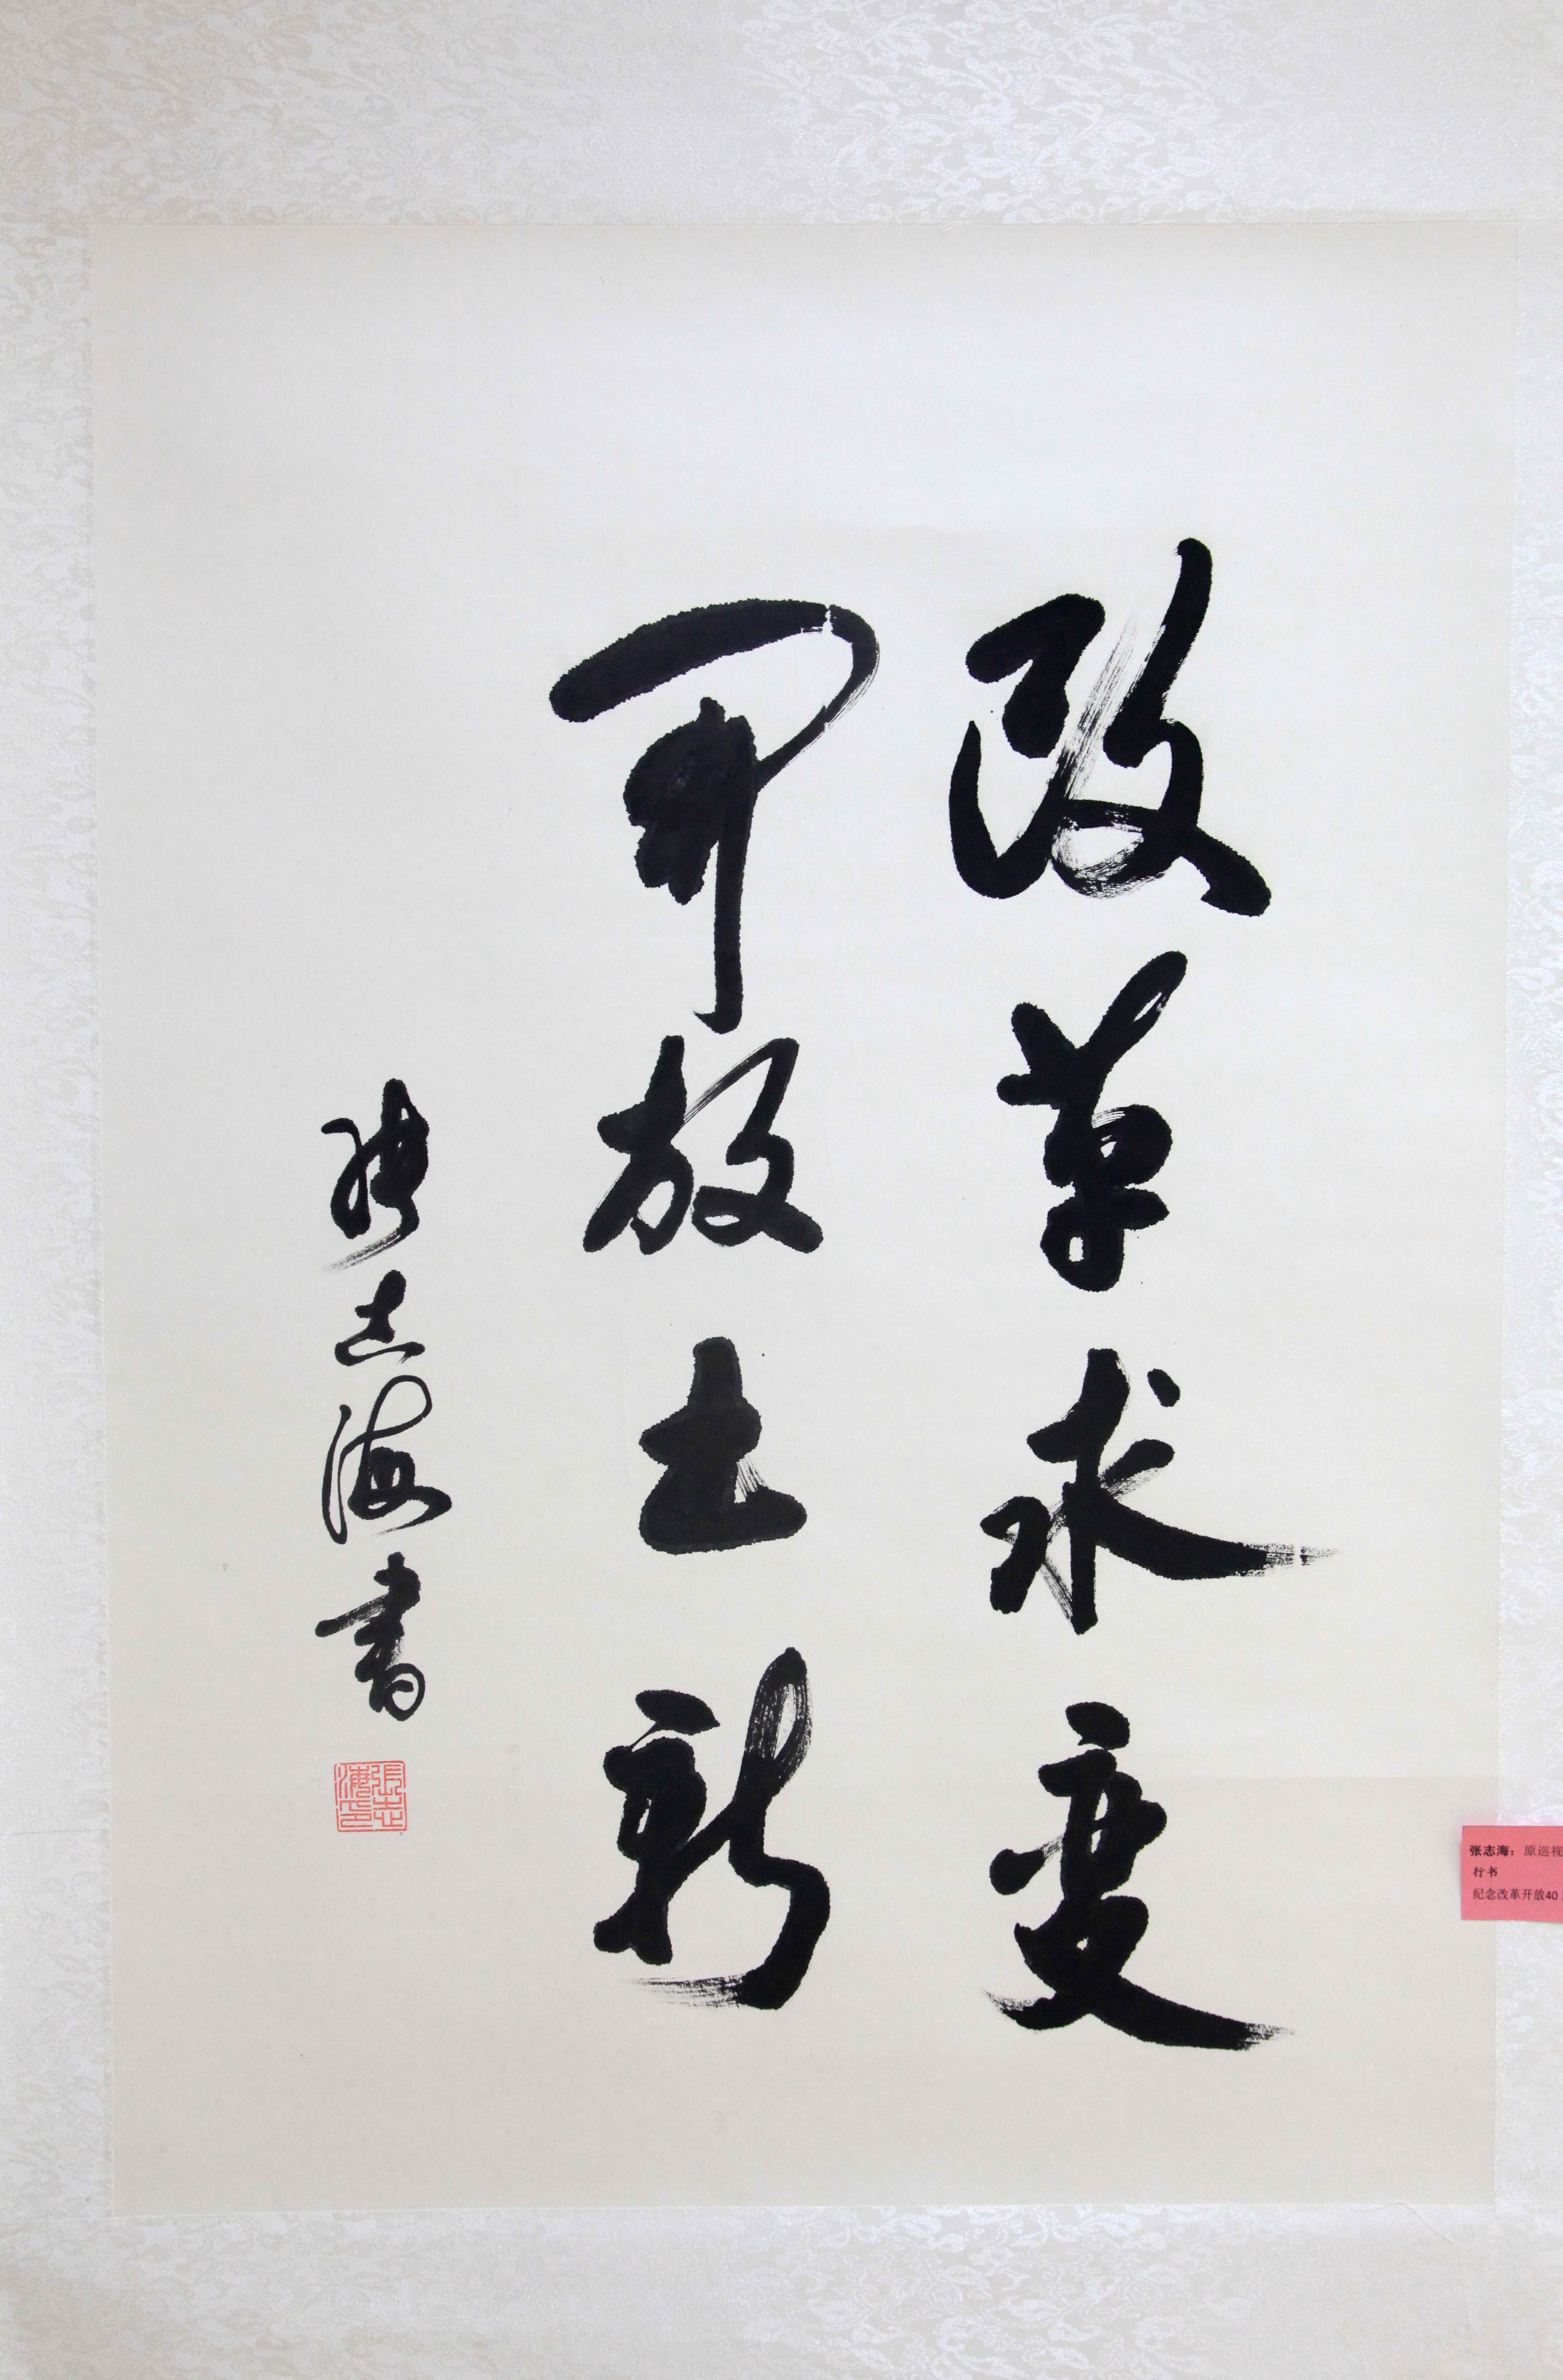 改革求变
開放出新
張志海書
張志海印
张志海：原巡视
行书
纪念改革开放40